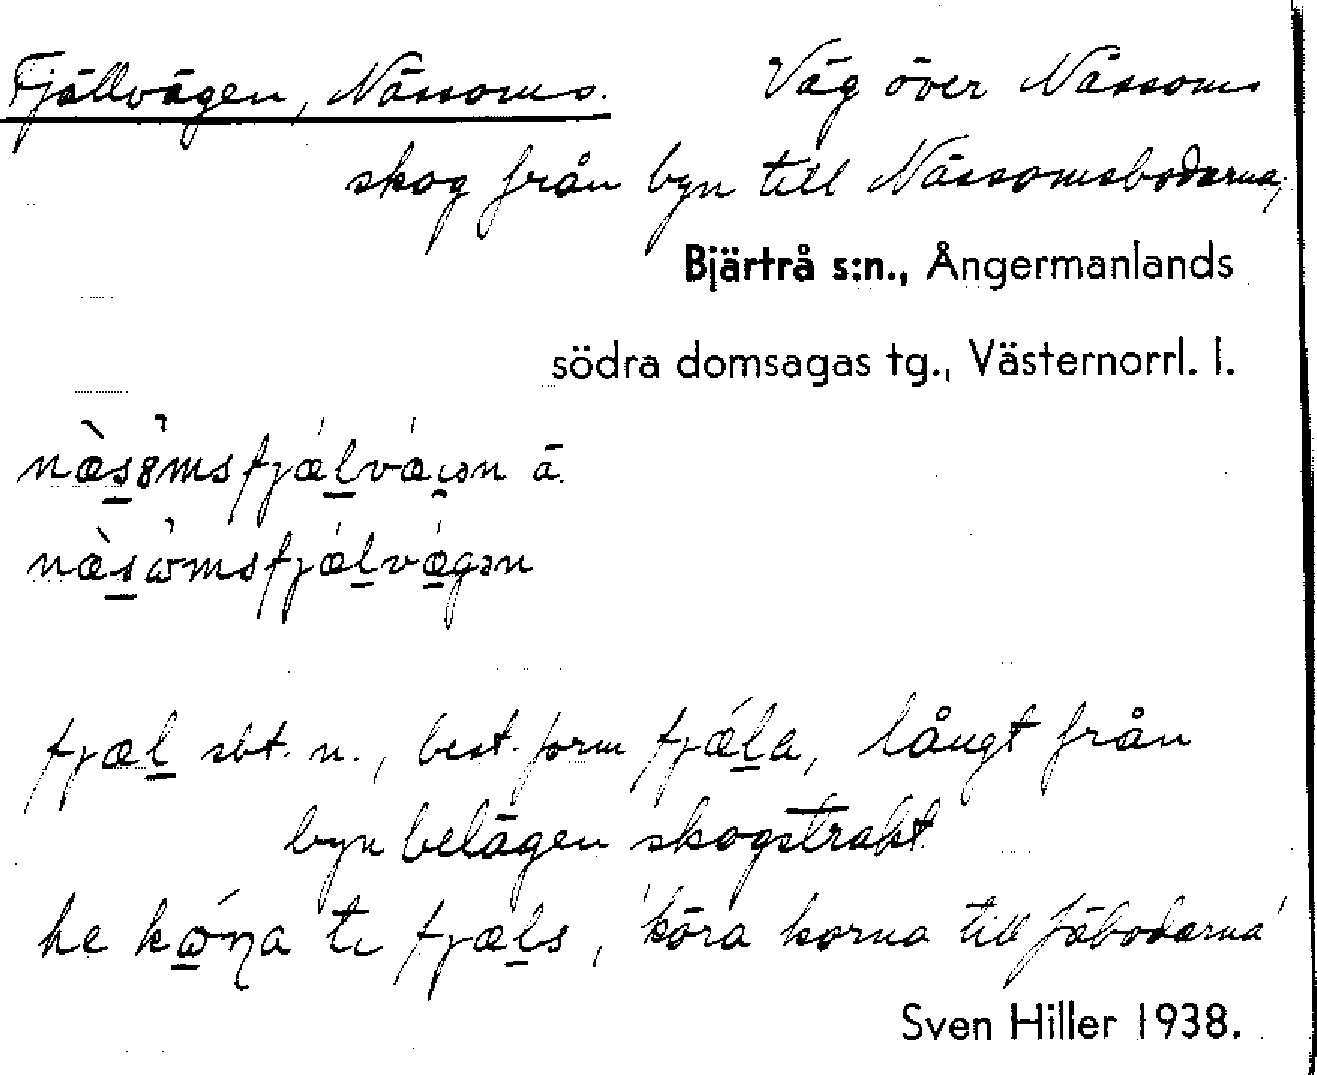 Fjällvägen, Nässoms. Väg över Nässoms
skog från byn till Nässomsbodarna,
Bjärtrå s:n., Ångermanlands
södra domsagas tg., Västernorrl. l.
fjæl sbt. n., best. form fjǽla, långt från
byn belägen skogstrakt
he te fjæls, 'köra korna till fäbodarna'
Sven Hiller 1938.